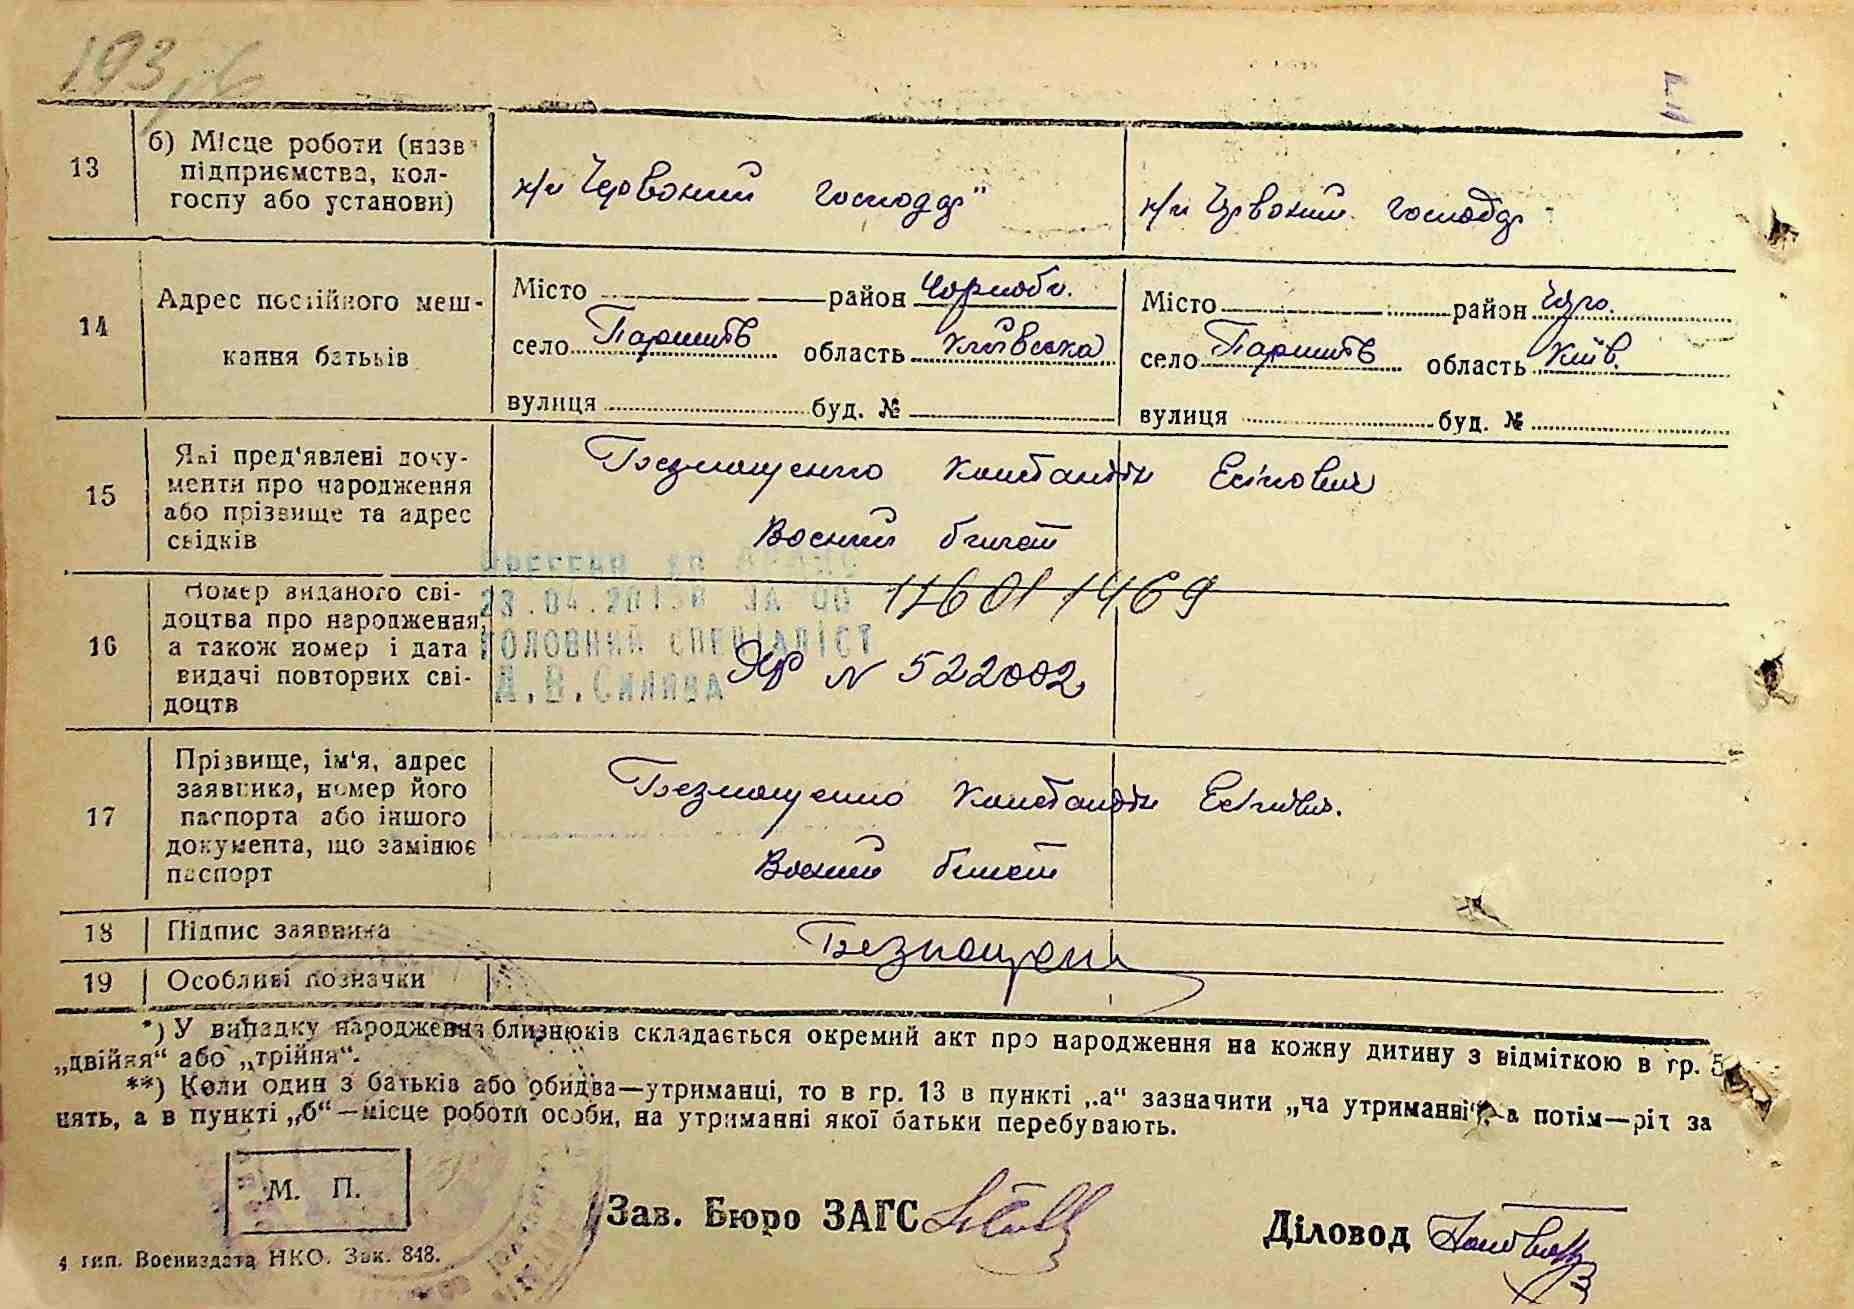 193
13
б) Місце роботи (назв
підприємства, кол-
госпу або установи)
к/г Червоний господар"
к/г Червоний господар
14
Адрес постійного меш-
кання батьків
Місто район Чорноб.
село Паришів область Київська
вулиця буд. №
Місто район Чор.
село Паришів область Київ.
вулиця буд. №
15
Які пред'явлені доку-
менти про народження
або прізвище та адрес
свідків
Безнощенко Константін Есіпович
Воєний білет
16
Номер виданого сві-
доцтва про народження,
а також номер і дата
видачі повторних сві-
доцтв
ГОЛОВНИЙ СПЕЦІАЛІСТ
ЯР N 522002
17
Прізвище, ім'я, адрес
заявника, номер його
паспорта або іншого
документа, що замінює
паспорт
Безнощенко Константін Есіпович.
Воєний білет
18
Підпис заявника
Безнощенк
19
Особливі позначки
*) У випадку народження близнюків складається окремий акт про народження на кожну дитину з відміткою в гр. 5
„двійня" або „трійня".
**) Коли один з батьків або обидва—утриманці, то в гр. 13 в пункті „а" зазначити „на утриманні", а потім—рід за
нять, а в пункті „б"—місце роботи особи, на утриманні якої батьки перебувають.
М. П.
Зав. Бюро ЗАГС
Діловод
4 тип. Воениздата НКО. Зак. 848.